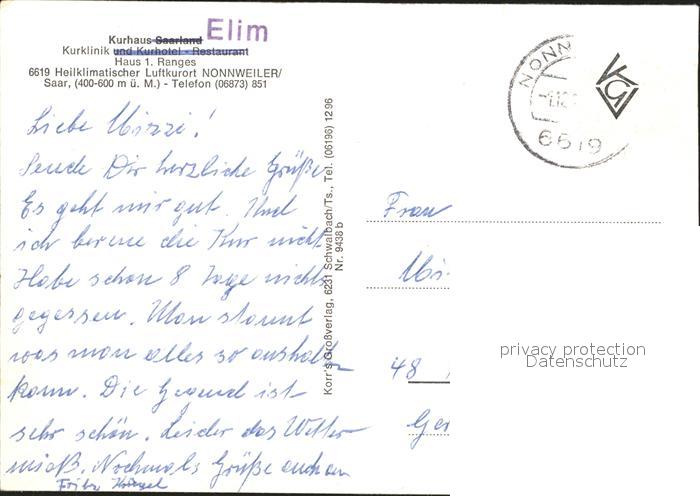 Kurhaus Saarland Elim
Kurklinik und Kurhotel - Restaurant
Haus 1. Ranges
6619 Heilklimatischer Luftkurort NONNWEILER/
Saar, (400-600 m ü. M.) - Telefon (06873) 851
Liebe Mizzi!
Sende Dir herzliche Grüße
Es geht mir gut. Und
ich bereue die Kur nicht
Habe schon 8 Tage nichts
gegessen. Man staunt
was man alles so aushalten
kann. Die Gegend ist
sehr schön. Leider das Wetter
mieß. Nochmals Grüße auch an
Fritz
Korr's Großverlag, 6231 Schwalbach/Ts., Tel. (06196) 12 96
Nr. 9438 b
NONN
6619
Frau
48
privacy protection
Datenschutz